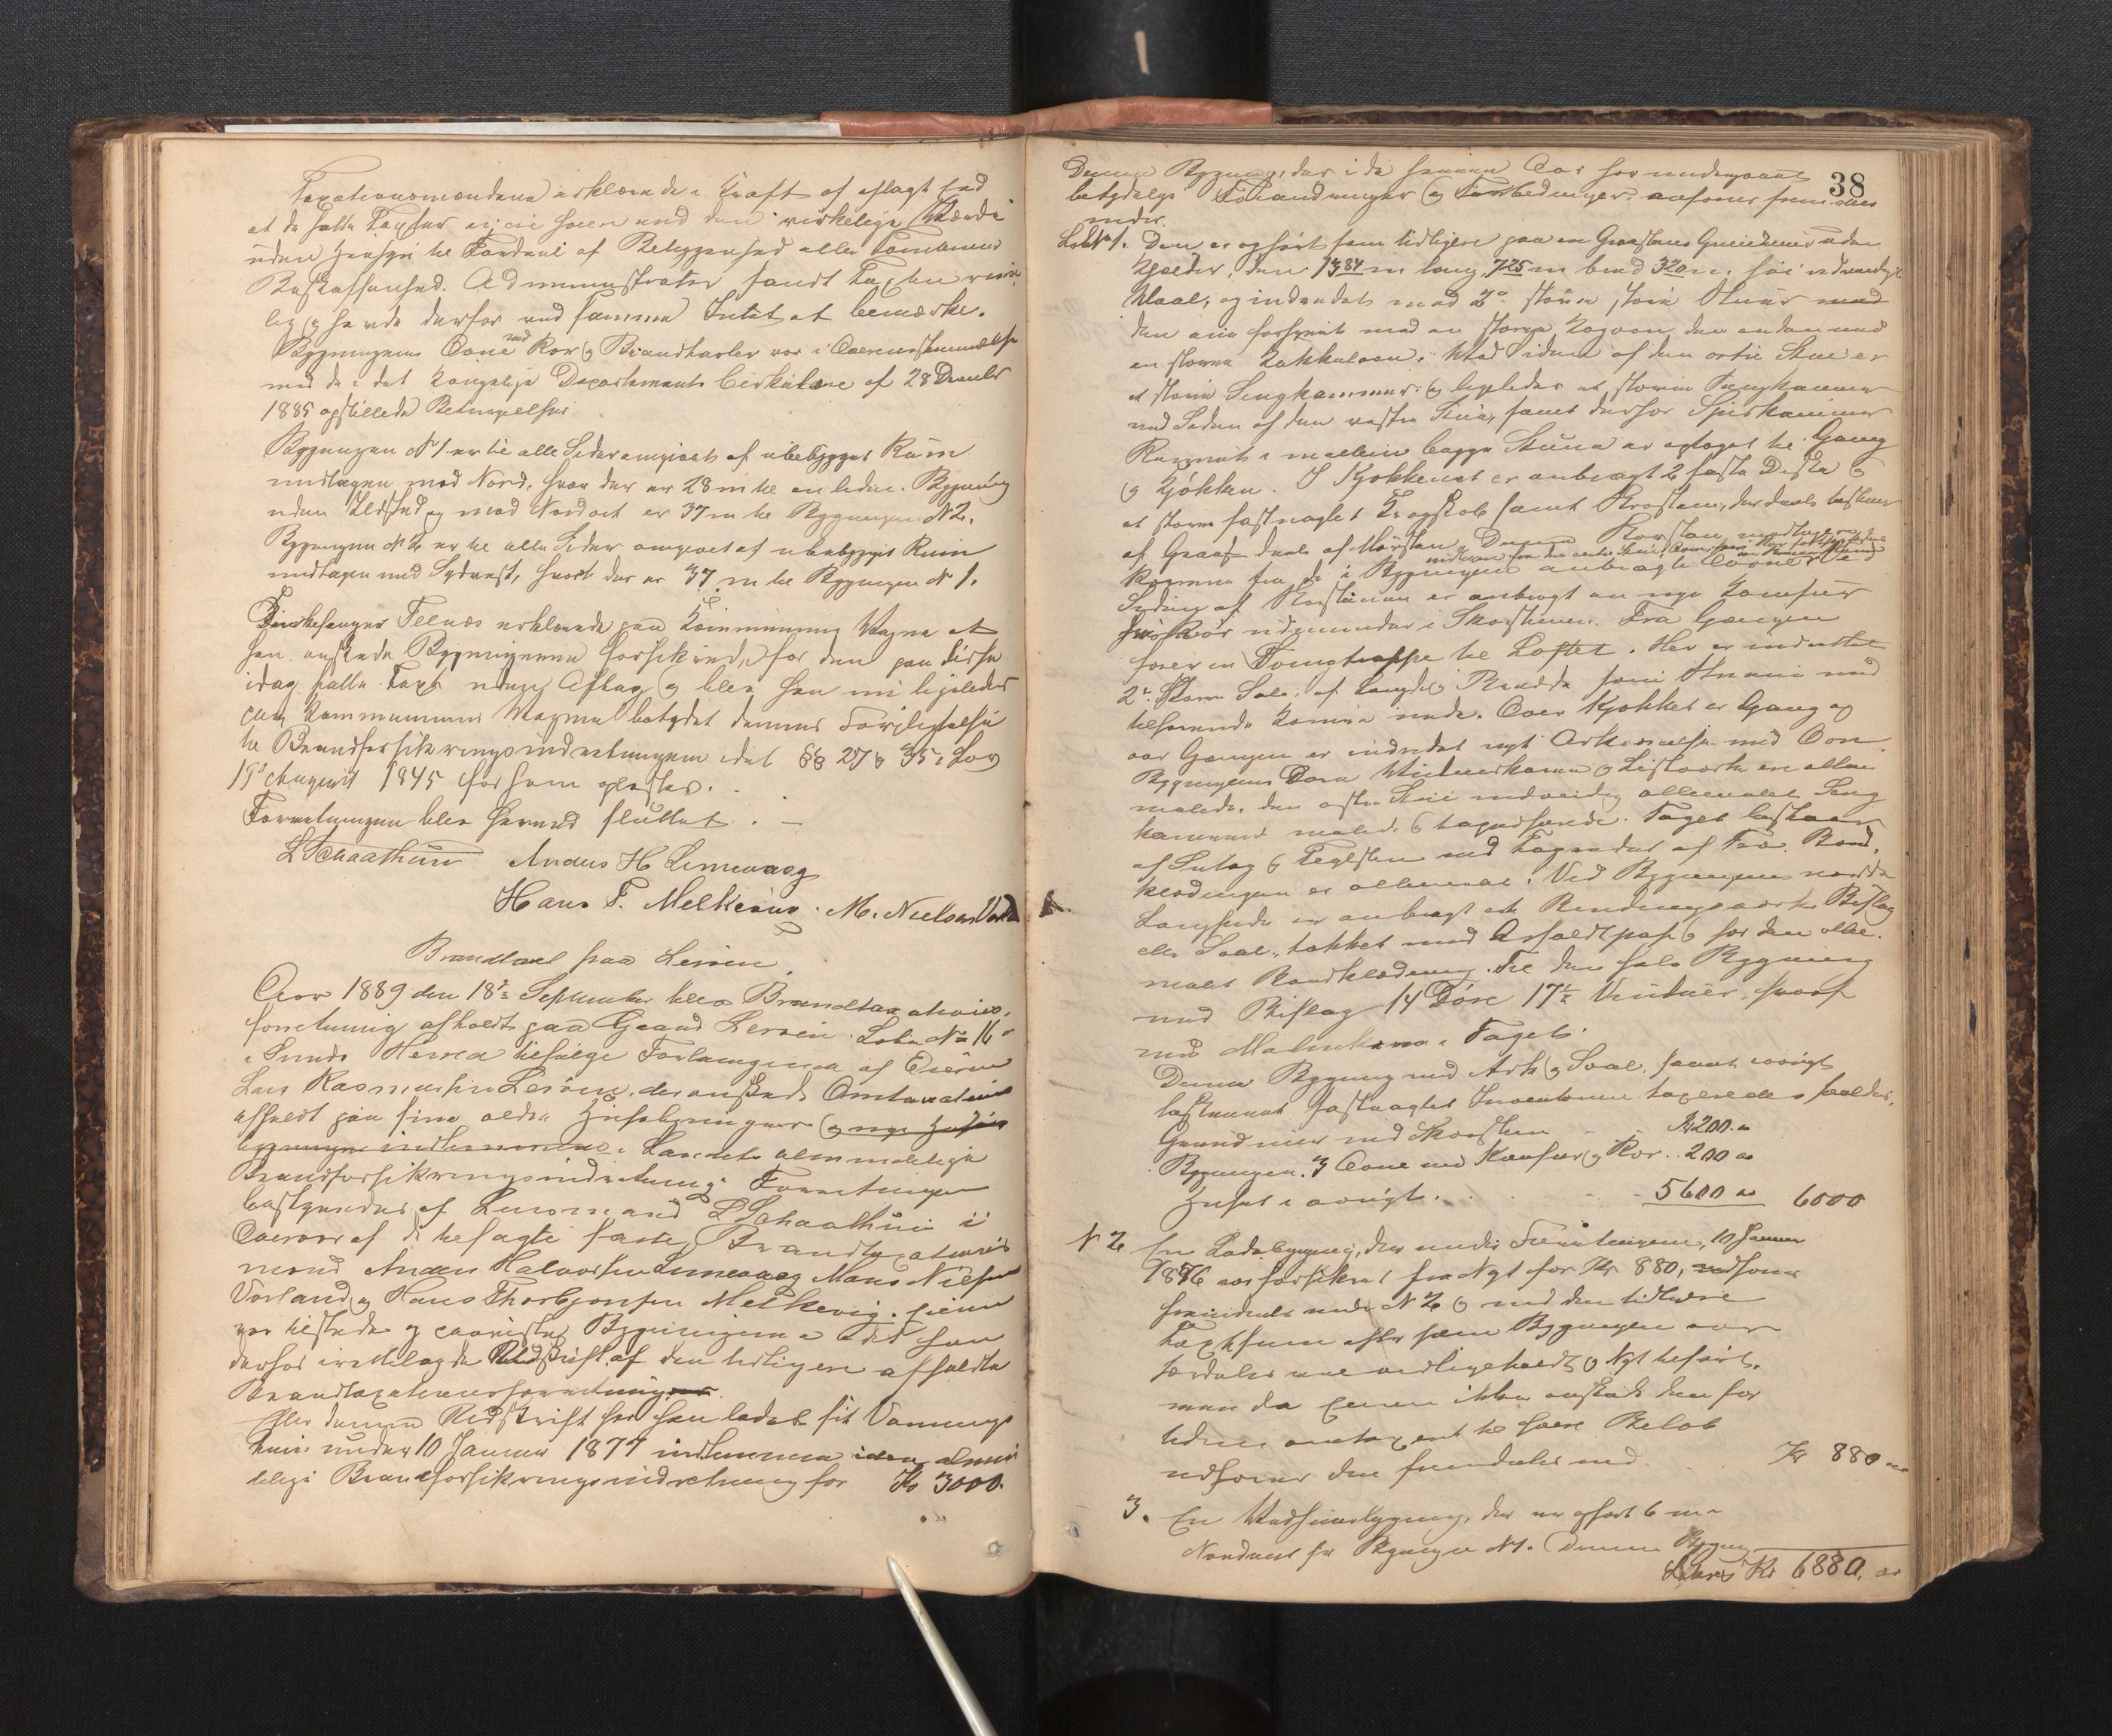 Taxationsmændene erklærede i Kraft af aflagt Eed
at de satte Taxter ei ere høiere end den virkelige Værdi
uden Hensyn til Fordeel af Beliggenhed eller Tomtens
Beskaffenhed. Administrator fandt Taxten rime
lig og havde derfor ved samme Intet at bemærke.
Bygningens Ovne med Rør og Brandtavler var i Overensstemmelse
med de i det Kongelige Departements Cirkulære af 28 Decembr
1885 opstillede Betingelser
Bygningen No 1 er til alle Sider omgivet af ubebygget Rum
undtagen mod Nord, hvor der er 28 m til en liden Bygning
uden Ildsted og mod Nordost er 37 m til Bygningen No 2.
Bygningen No 2 er til alle Sider omgivet af ubebygget Rum
undtagen mod Sydvest, hvort der er 37 m til Bygningen No 1.
Kirkesanger Teenæs erklærede paa Kommunens Vegne at
han ønskede Bygningerne forsikrede for den paa disse
idag satte Taxt uden Aftag og blev han nu ligeledes
paa Kommunens Vegne betydet dennes Forpligtelse
til Brandforsikringsindretningen idet §§ 27 og 35 i Lov
19de August 1845 for ham oplæstes.
Forretningen blev hermed sluttet. —
L Schaathun Anders H Limevaag
Hans T. Melkevig. M. Nielsen Vorland
Brandtaxt paa Lervin
Aar 1889 den 18de September blev Brandtaxations-
forretning afholdt paa Gaard Lervin Løbe No 16
i Hersed tilfølge Forlangende af Eieren
Lars Rasmussen Lervin, der ønskede Omtaxation
afholdt paa sine ældre Husebygninger og nye Huse
bygninger indlemmede i Landets almindelige
Brandforsikringsindretning. Forretningen
bestyredes af Lensmand L Schaathun i
Overvær af de befagte faste Brandtaxations
mænd Anders Halvorsen Limevaag Mons Nielsen
Vorland og Hans Thorbjørnsen Melkevig. Eieren
var tilstede og paaviste Bygningerne idet han
derhos fremlagde Udskrift af den tidligere afholdte
Brandtaxationsforretninger
Efter denne Udskrift har han ladet sit Vaanings
huus under 10 Januar 1877 indlemme i den almin
delige Brandforsikringsindretning for Kr 3000.
38
Denne Bygning, der i de senere Aar har undergaaet
betydelige Forandringer og Forbedringer anføres fremdeles
under
Litr 1. Den er opført som tidligere paa en Graastens Grundmur uden
Kjælder, den 13 84 m lang, 7 25 m bred 3 20 m. høi udvendigt
Maal, og indredet med 2de større Stuer med
den ene forsynet med en større Kogovn den anden med
en større Kakkelovn. Ved siden af den østre Stue er
et større Sengkammer og ligeledes et større Sengkammer
ved Siden af den vestre Stue, samt derhos Spiskammer
Rummet i mellem begge Stuer er optaget til Gang
og Kjøkken. I Kjøkkenet er anbragt 2 faste Diske og
et større fastnaglet Kopskab samt Skorsten, der deels bestaaer
af Graa- deels af Mursten. Denne Skorsten modtager
Rørene fra de i Bygningen anbragte Ovne. Ved
Siden af Skorstenen er anbragt en nye Komfur
hvis Rør udmunder i Skorstenen. Fra Gangen
fører en Svingtrappe til Loftet. Her er indredet
2de Store Sale af Længde og Bredde som Stuerne med
tilhørende Kamre nede. Over Kjøkket er Gang og
over Gangen er indredet nyt Arkværelse med Ovn.
Bygningens Døre Vindueskarme og Listværk ere alle
malede, den østre Stue indvendig oliemalet Seng
kammeret malet og tapetserede. Taget bestaaer
af Sutag og Teglsten med Tagrender af Træ. Bord-
klædningen er oliemalet. Ved Bygningens nordre
Langside er anbragt et Bindingsværks Bislag
eller Sval, takket med Asfaltpap og har den olie-
malet Bordklædning. Til den hele Bygning
med Bislag 14 Døre 17½ Vinduer, hvoraf
Taget.
Denne Bygning med Ark og Sval, samt øvrigt
bestemmet fastnaglet Inventarium taxeredes saaledes:
Grundmur med Skorsten . . Kr 200.00
Bygningen. 3 Ovne med Komfur og Rør . . 200 00
Huset i øvrigt . . . . . 5600 00 6000
No 2 En Ladebygning, der under Forretningen, 10 Januar
1876 var forsikret fra Nyt for Kr 880, anføres
fremdeles under No 2 og med den tidligere
Taxtsum efter som Bygningen var
fremdeles vel vedligeholdt og Nyt tilført.
men da Eieren ikke ønskede den for
tiden omtaxeret til høiere Beløb
udføres den fremdeles med . . Kr 880 00
3. En Vedhuusbygning, der er opført 6 m
Nordvest for Bygningen No 1. Denne Bygning
Latus Kr 6880, 00